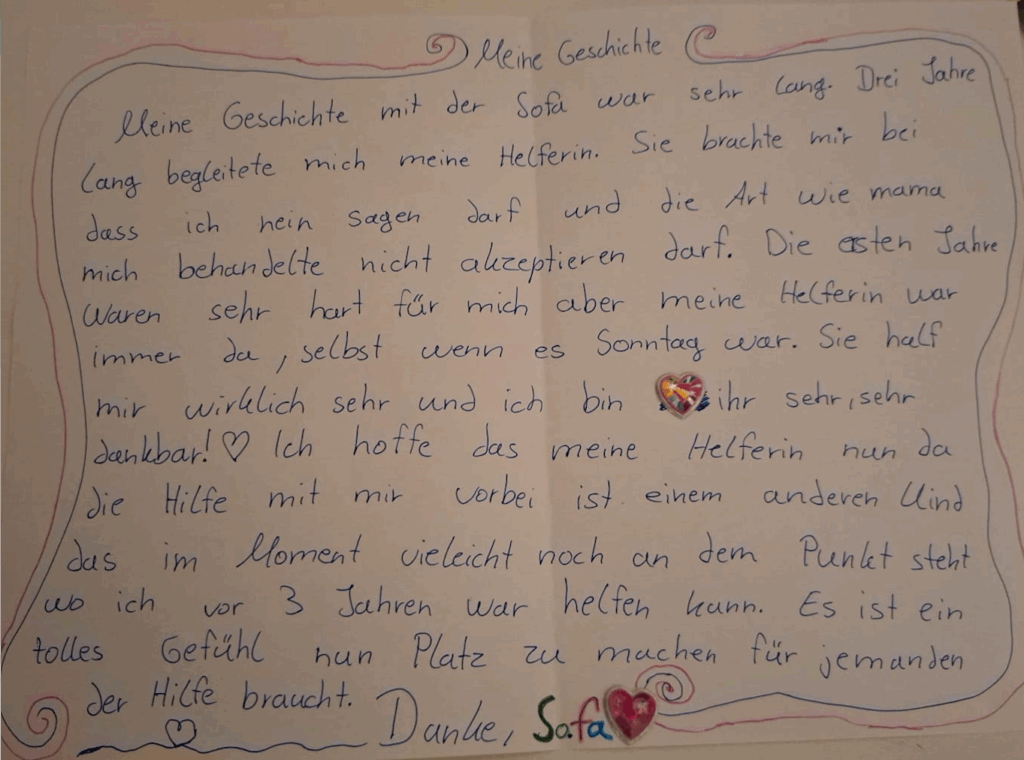 Meine Geschichte
Meine Geschichte mit der Sofa war sehr lang. Drei Jahre
lang begleitete mich meine Helferin. Sie brachte mir bei
dass ich nein sagen darf und die Art wie mama
mich behandelte nicht akzeptieren darf. Die ersten Jahre
waren sehr hart für mich aber meine Helferin war
immer da, selbst wenn es Sonntag war. Sie half
mir wirklich sehr und ich bin ihr sehr, sehr
dankbar! ♡ Ich hoffe das meine Helferin nun da
die Hilfe mit mir vorbei ist einem anderen Kind
das im Moment vieleicht noch an dem Punkt steht
wo ich vor 3 Jahren war helfen kann. Es ist ein
tolles Gefühl nun Platz zu machen für jemanden
der Hilfe braucht.
Danke, Sofa